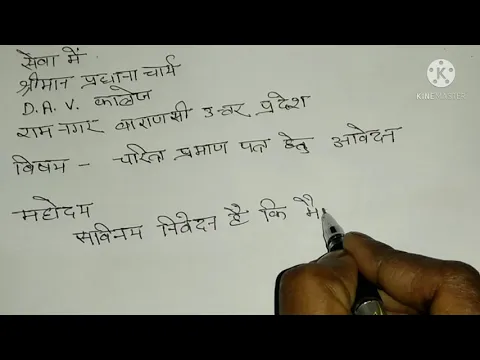 सेवा में
श्रीमान प्रधानाचार्य
D.A.V. कालेज
रामनगर वाराणसी उत्तर प्रदेश
विषय - चरित्र प्रमाण पत्र हेतु आवेदन
महोदय
सविनय निवेदन है कि मै
KINEMASTER